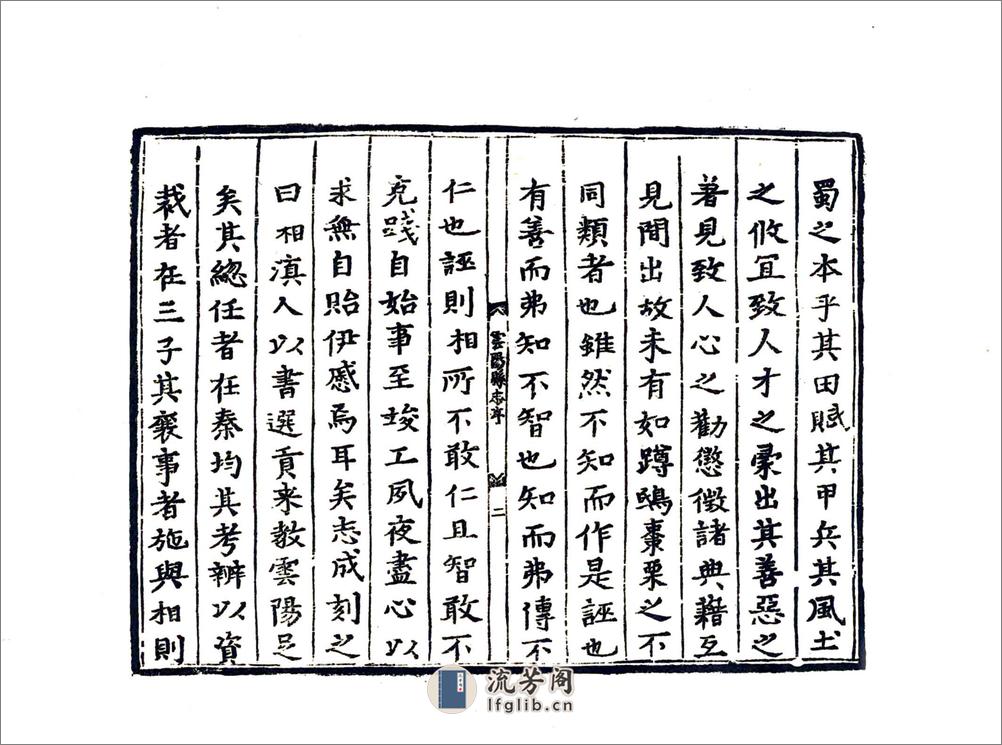 蜀之本乎其田賦其甲兵其風土
之攸冝致人才之彚出其善惡之
著見致人心之勸懲徵諸典籍互
見間出故未有如蹲鴟棗栗之不
同類者也雖然不知而作是誣也
有善而弗知不智也知而弗傳不
雲陽縣志序
二
仁也誣則相所不敢仁且智敢不
克踐自始事至竣工夙夜盡心以
求無自貽伊慼焉耳矣志成刻之
曰相滇人以書選貢来教雲陽邑
矣其總任者在秦均其考辨以資
裁者在三子其襄事者施與相則
流芳阁
lfglib.cn